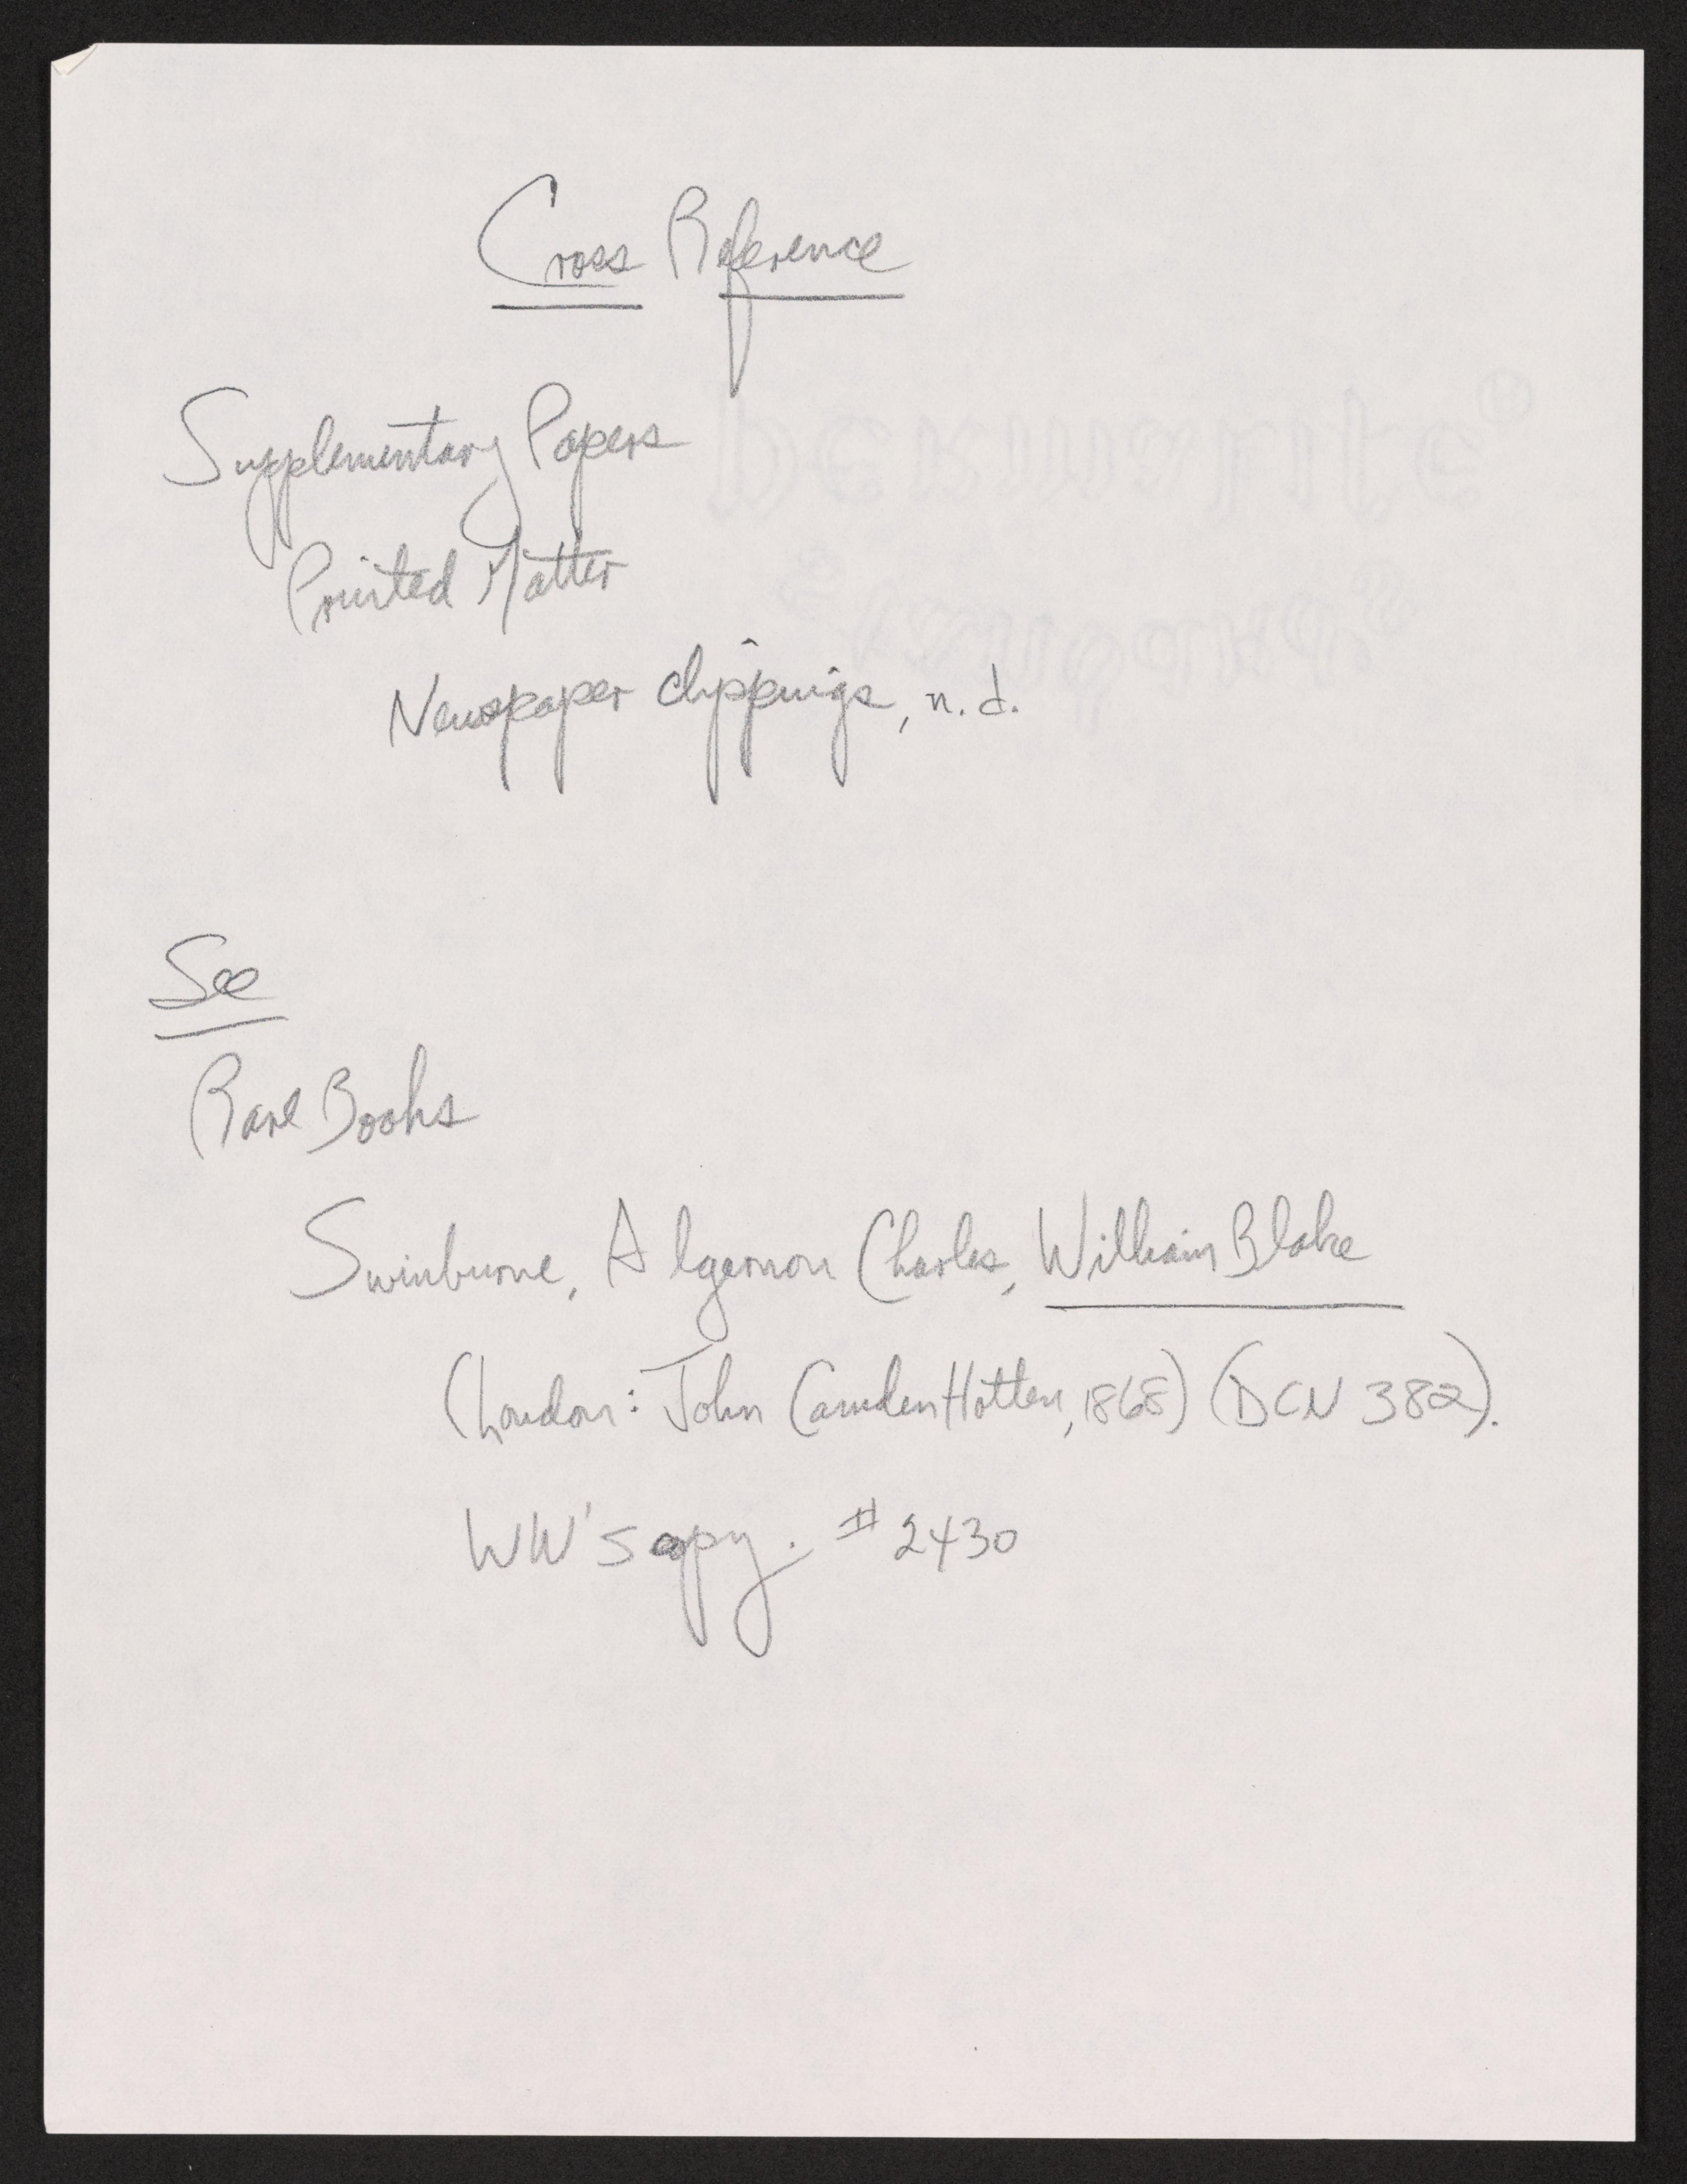 Cross Reference
Supplementary Papers
Printed Matter
Newspaper clippings, n.d.
See
Rare Books
Swinburne, Algernon Charles, William Blake
(London: John Camden Hotten, 1868) (DCN 382).
WW's copy. #2430